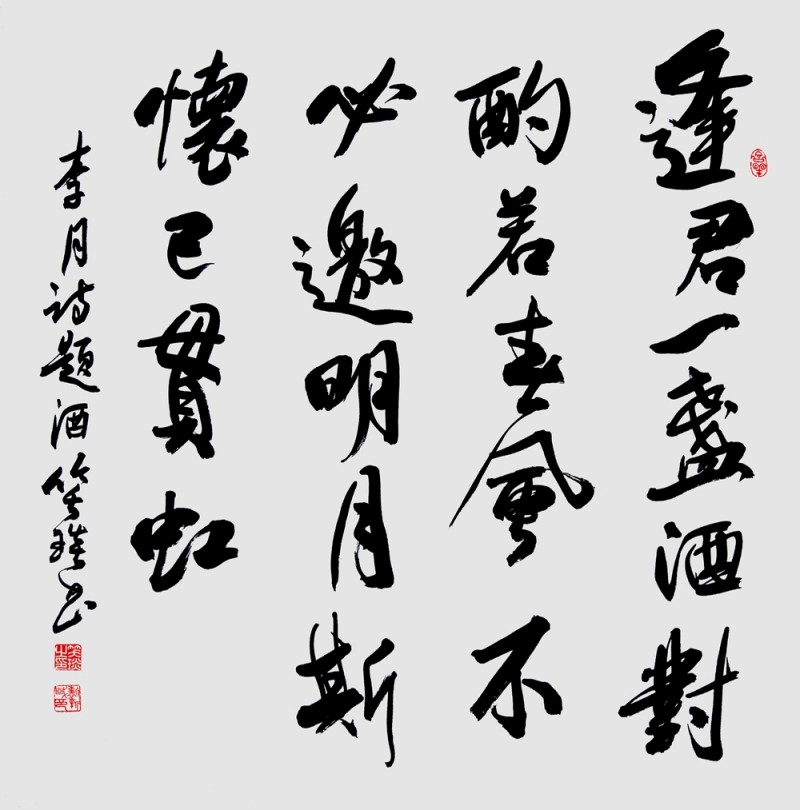 逢君一盞酒對
酌若春風不
必邀明月斯
懷已貫虹
李月詩題酒笑琰书